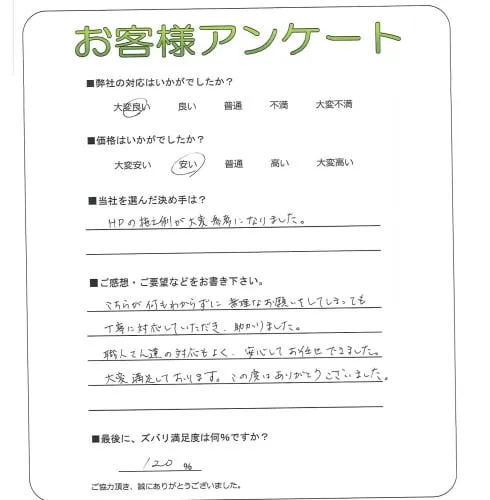 お客様アンケート
■弊社の対応はいかがでしたか？
大変良い　良い　普通　不満　大変不満
■価格はいかがでしたか？
大変安い　安い　普通　高い　大変高い
■当社を選んだ決め手は？
HPの施工例が大変参考になりました。
■ご感想・ご要望などをお書き下さい。
こちらが何もわからずに無理なお願いをしてしまっても
丁寧に対応していただき、助かりました。
職人さん達の対応もよく、安心してお任せできました。
大変満足しております。この度はありがとうございました。
■最後に、ズバリ満足度は何%ですか？
120 %
ご協力頂き、誠にありがとうございました。